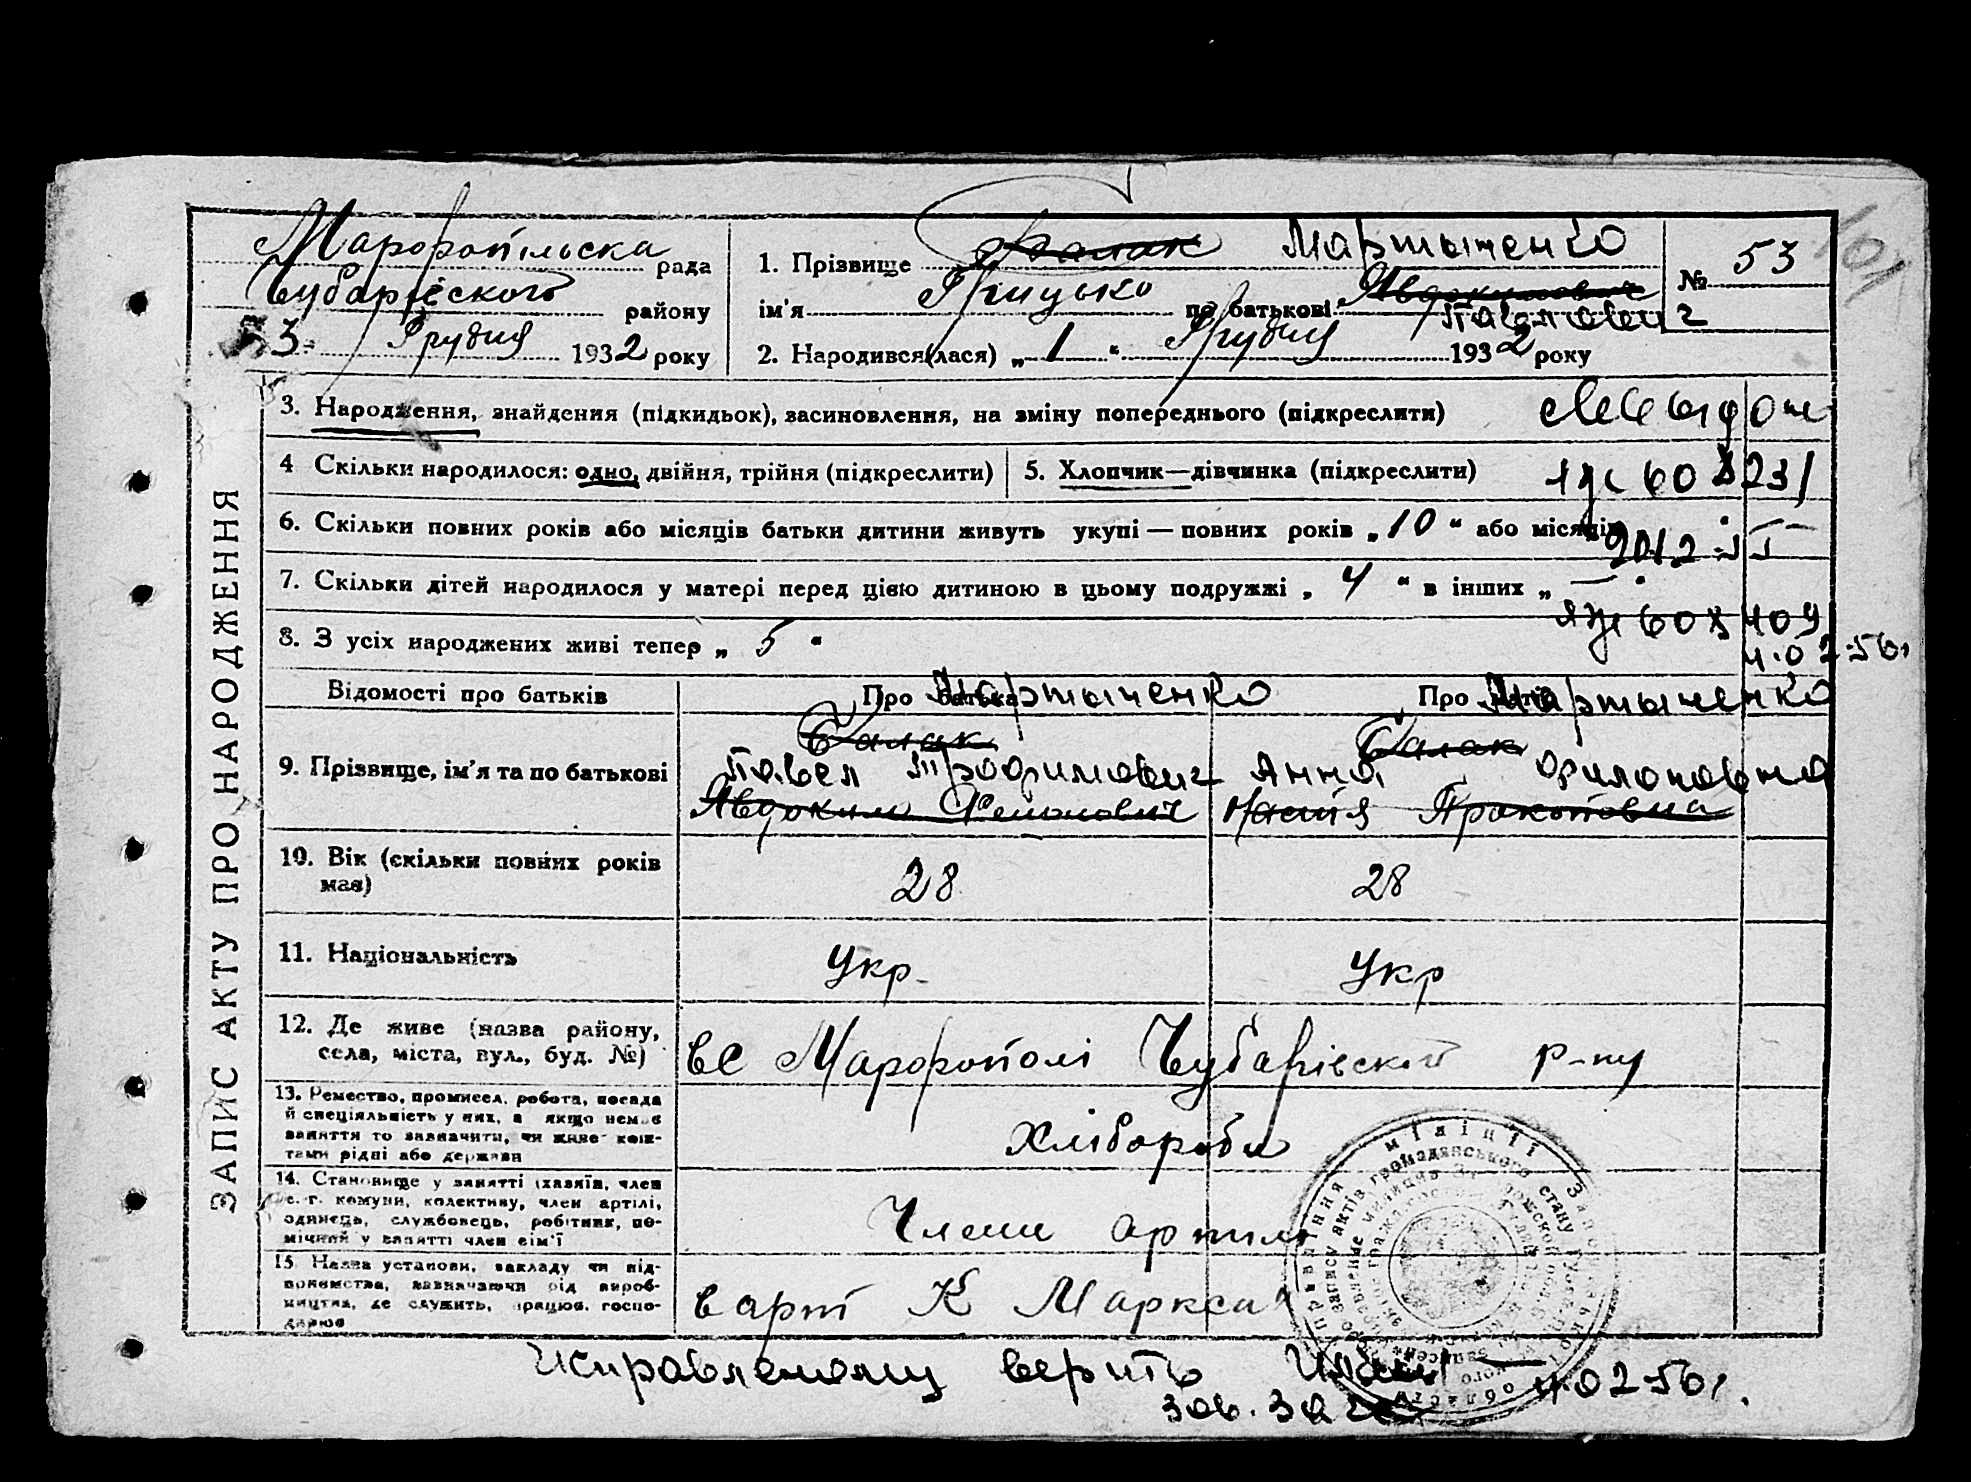 101
Марфопільска рада
Чубарівского району
3 Грудня 1932 року
1. Прізвище Балак Мартыненко
ім'я Грицько по батькові Явдокимович
Павлович
№ 53
2. Народився(лася) „ 1 “ Грудня 1932 року
ЗАПИС АКТУ ПРО НАРОДЖЕННЯ
3. Народження, знайдения (підкидьок), засиновлення, на зміну попереднього (підкреслити)
4 Скільки народилося: одно, двійня, трійня (підкреслити)
5. Хлопчик—дівчинка (підкреслити)
6. Скільки повних років або місяців батьки дитини живуть укупі — повних років „ 10 “ або місяців
7. Скільки дітей народилося у матері перед цією дитиною в цьому подружжі „ 4 “ в інших „ —
8. З усіх народжених живі тепер „ 5 “
4.02.56г.
Відомості про батьків
Про батька Мартыненко
Про матір Мартыненко
9. Прізвище, ім'я та по батькові
Балак
Павел Трофимович
Явдоким Семонович
Балак
Анна Филоповна
Настя Прокоповна
10. Вік (скільки повних років має)
28
28
11. Національність
Укр.
Укр
12. Де живе (назва району, села, міста, вул., буд. №)
в с Марфополі Чубарівского р-ну
13. Ремество, промисел, робота, посада й спеціяльність у них, а якщо немає заняття то зазначити, чи живе коштами рідні або держави
Хлібороби
14. Становище у занятті (хазяїн, член с.-г. комуни, колективу, член артілі, одинець, службовець, робітник, помічний у занятті член сім'ї
Члени артили
15. Назва установи, закладу чи підприємства, зазначаючи рід виробництва, де служить, працює, господарює
в арт К Маркса
Исправленому верить
Зав. Заг
4.02.56г.